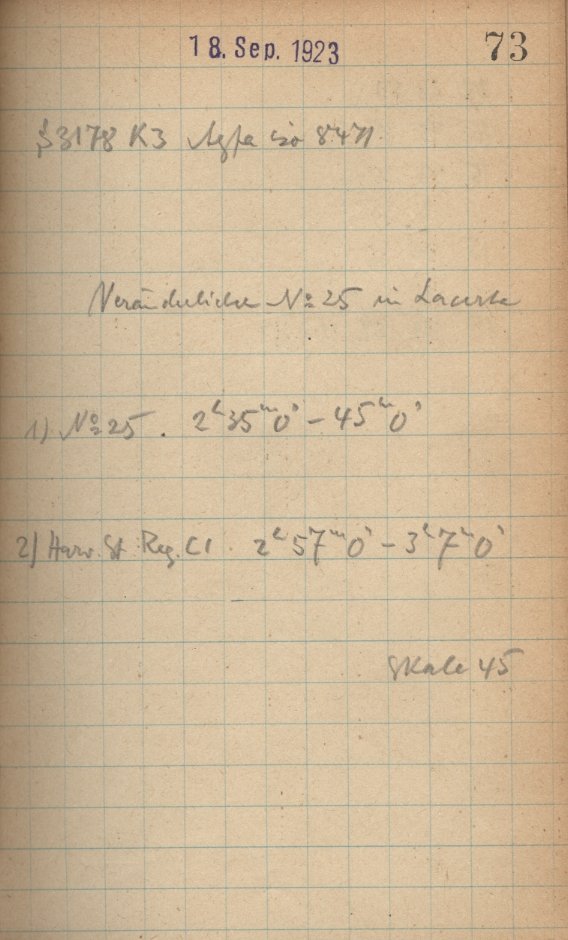 18. Sep. 1923
73
S 3178 K3 Agfa iso 8471
Veränderlicher No 25 in Lacerta
1) No 25. 2h 35m 0s – 45m 0s
2) Harv. St. Reg. C1. 2h 57m 0s – 3h 7m 0s
Skale 45